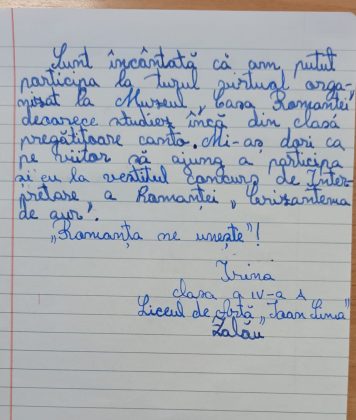 Sunt încântată că am putut
participa la turul virtual orga-
nizat la Muzeul „Casa Romanței"
deoarece studiez încă din clasa
pregătitoare canto. Mi-aș dori ca
pe viitor să ajung a participa
și eu la vestitul Concurs de Inter-
pretare, a Romanței „Crizantema
de aur".
„Romanța ne unește"!
Irina
clasa a IV-a A
Liceul de Artă „Ioan Sima"
Zalău